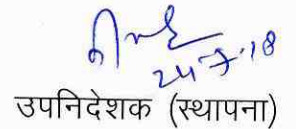 24-7-18
उपनिदेशक (स्थापना)